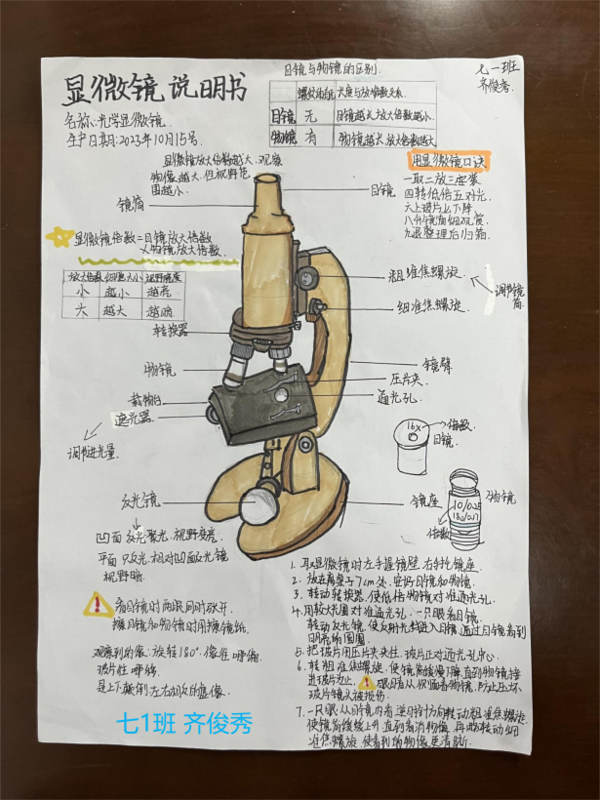 显微镜说明书
名称:光学显微镜.
生产日期:2023年10月15号.
目镜与物镜的区别.
七一班
齐俊秀.
螺纹 长度与放大倍数关系.
目镜 无 目镜越大放大倍数越小.
物镜 有 物镜越大放大倍数越大
显微镜放大倍数越大,观察
物像越大.但视野范
围越小.
用显微镜口诀
一取二放三安装
四转低倍五对光
六上玻片七下降
八升镜筒细观赏
九退整理后归箱
镜筒
目镜
显微镜倍数=目镜放大倍数
×物镜放大倍数.
放大倍数 细胞大小 视野亮度
小 越小 越亮
大 越大 越暗
粗准焦螺旋
细准焦螺旋.
调节镜
筒
转换器
镜臂
物镜
压片夹.
载物台
通光孔.
遮光器.
调节进光量.
16×
倍数
目镜.
反光镜
镜座
物镜
10/0.25
倍数
凹面反光聚光.视野变亮.
平面只反光.相对凹面反光镜
视野暗.
看目镜时两眼同时张开.
擦目镜和物镜时用擦镜纸.
观察到的像:旋转180°.像在哪偏
玻片往哪移.
是上下颠倒左右相反的虚像.
1. 取显微镜时左手握镜臂右手托镜座.
2. 放在离桌子7cm处.安好目镜和物镜.
3. 转动转换器.使低倍物镜对准通光孔.
4. 用较大光圈对准通光孔.一只眼看目镜.
转动反光镜.使反射光线进入目镜.通过目镜看到
明亮的圆圈
5. 把玻片用压片夹夹住.玻片正对通光孔中心.
6. 转粗准焦螺旋.使镜筒缓慢下降直到物镜接
近玻片为止. 眼睛从侧面看物镜.防止压坏
玻片镜头被损伤.
7. 一只眼从目镜内看逆时针方向转动粗准焦螺旋
使镜筒缓缓上升直到看清物像.再略转动细
准焦螺旋.使看到的物像更清晰.
七1班 齐俊秀